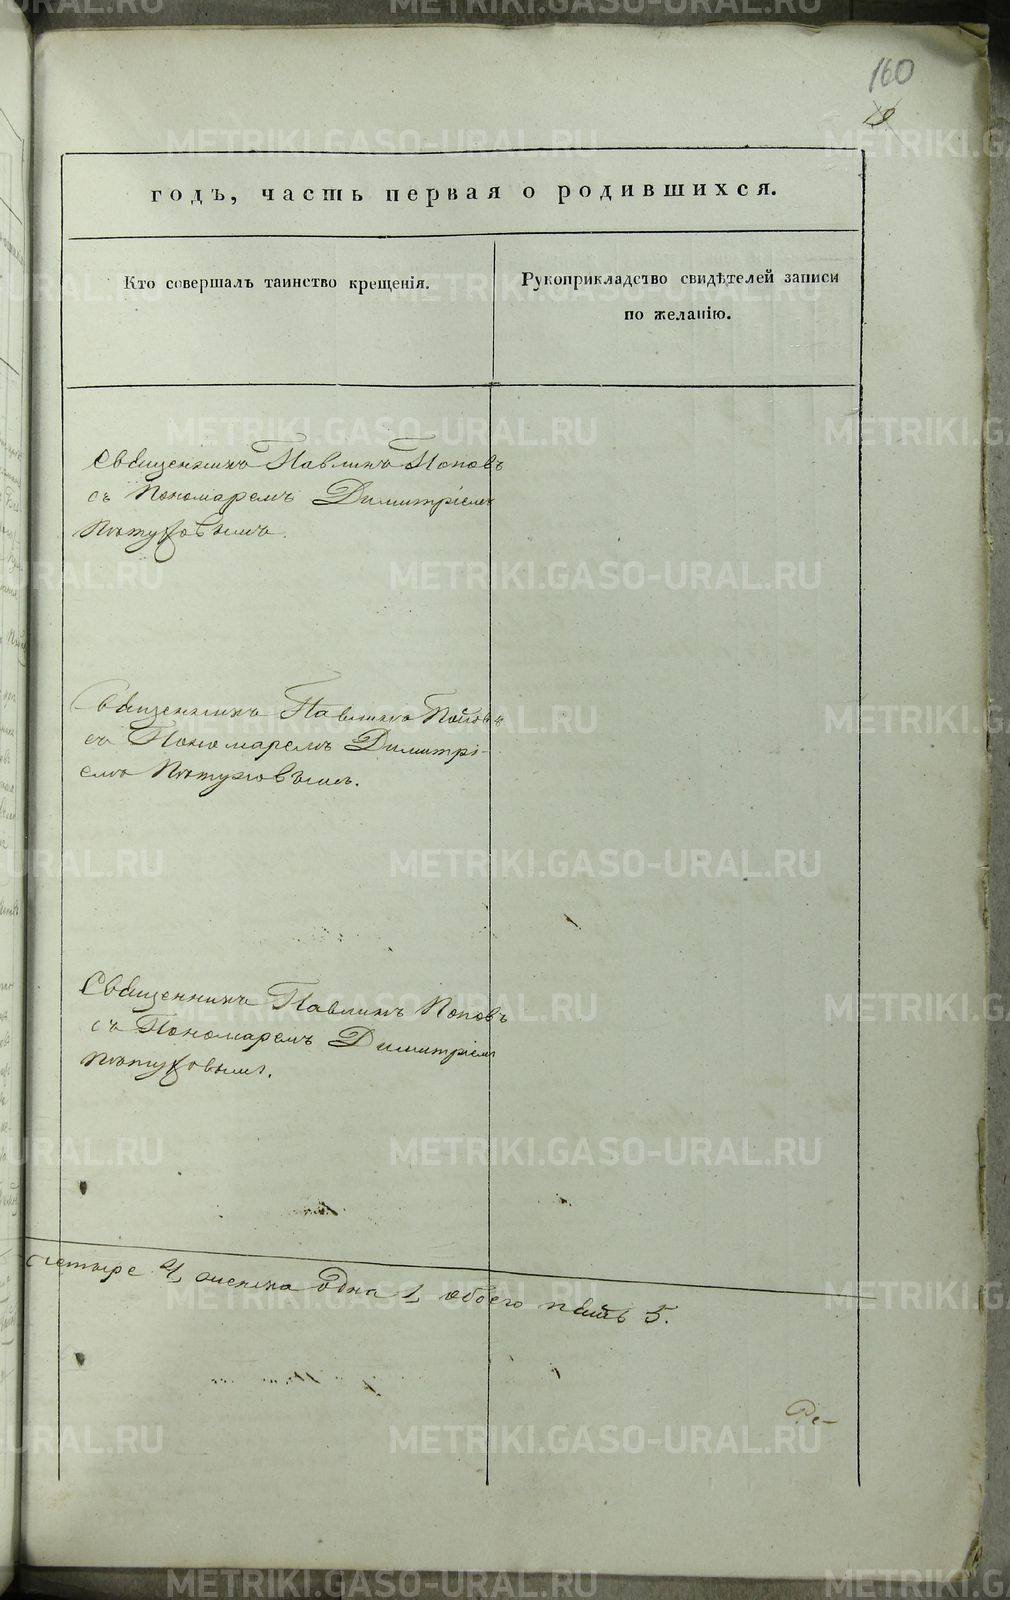 160
19
годъ, часть первая о родившихся.
Кто совершалъ таинство крещенія.
Рукоприкладство свидѣтелей записи
по желанію.
Священникъ Павлинъ Поповъ
съ Пономаремъ Димитріемъ
Пѣтуховымъ.
Священникъ Павлинъ Поповъ
съ Пономаремъ Димитрі-
емъ Пѣтуховымъ.
Священникъ Павлинъ Поповъ
съ Пономаремъ Димитріемъ
Пѣтуховымъ.
четыре 4, женска одна 1, обоего пять 5.
Ре-
METRIKI.GASO-URAL.RU